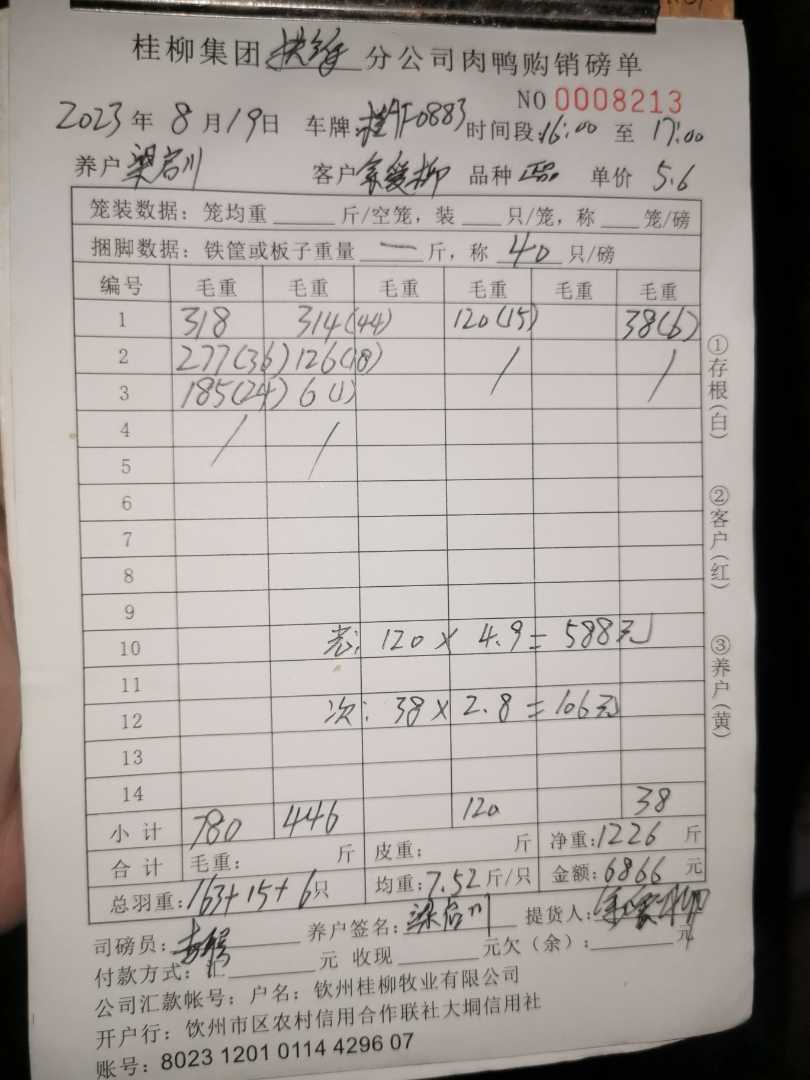 桂柳集团 分公司肉鸭购销磅单
NO 0008213
2023年8月19日 车牌:桂AF0883 时间段:16:00 至 17:00
养户 梁启川 客户 品种 正品 单价 5.6
笼装数据: 笼均重 斤/空笼, 装 只/笼, 称 笼/磅
捆脚数据: 铁筐或板子重量 一 斤, 称 40 只/磅
编号 毛重 毛重 毛重 毛重 毛重 毛重
1 318 314(44) 120(15) 38(6)
2 277(36) 126(18) / /
3 185(24) 6(1)
4 / /
5
6
7
8
9
10 老: 120 × 4.9 = 588元
11
12 次: 38 × 2.8 = 106元
13
14
小计 780 446 120 38
合计 毛重: 斤 皮重: 斤 净重:1226 斤
总羽重:163+15+6只 均重:7.52斤/只 金额:6866 元
司磅员: 养户签名:梁启川 提货人:
付款方式:汇 元 收现 元欠(余): 元
公司汇款帐号: 户名: 钦州桂柳牧业有限公司
开户行: 钦州市区农村信用合作联社大垌信用社
账号: 8023 1201 0114 4296 07
①存根(白)
②客户(红)
③养户(黄)